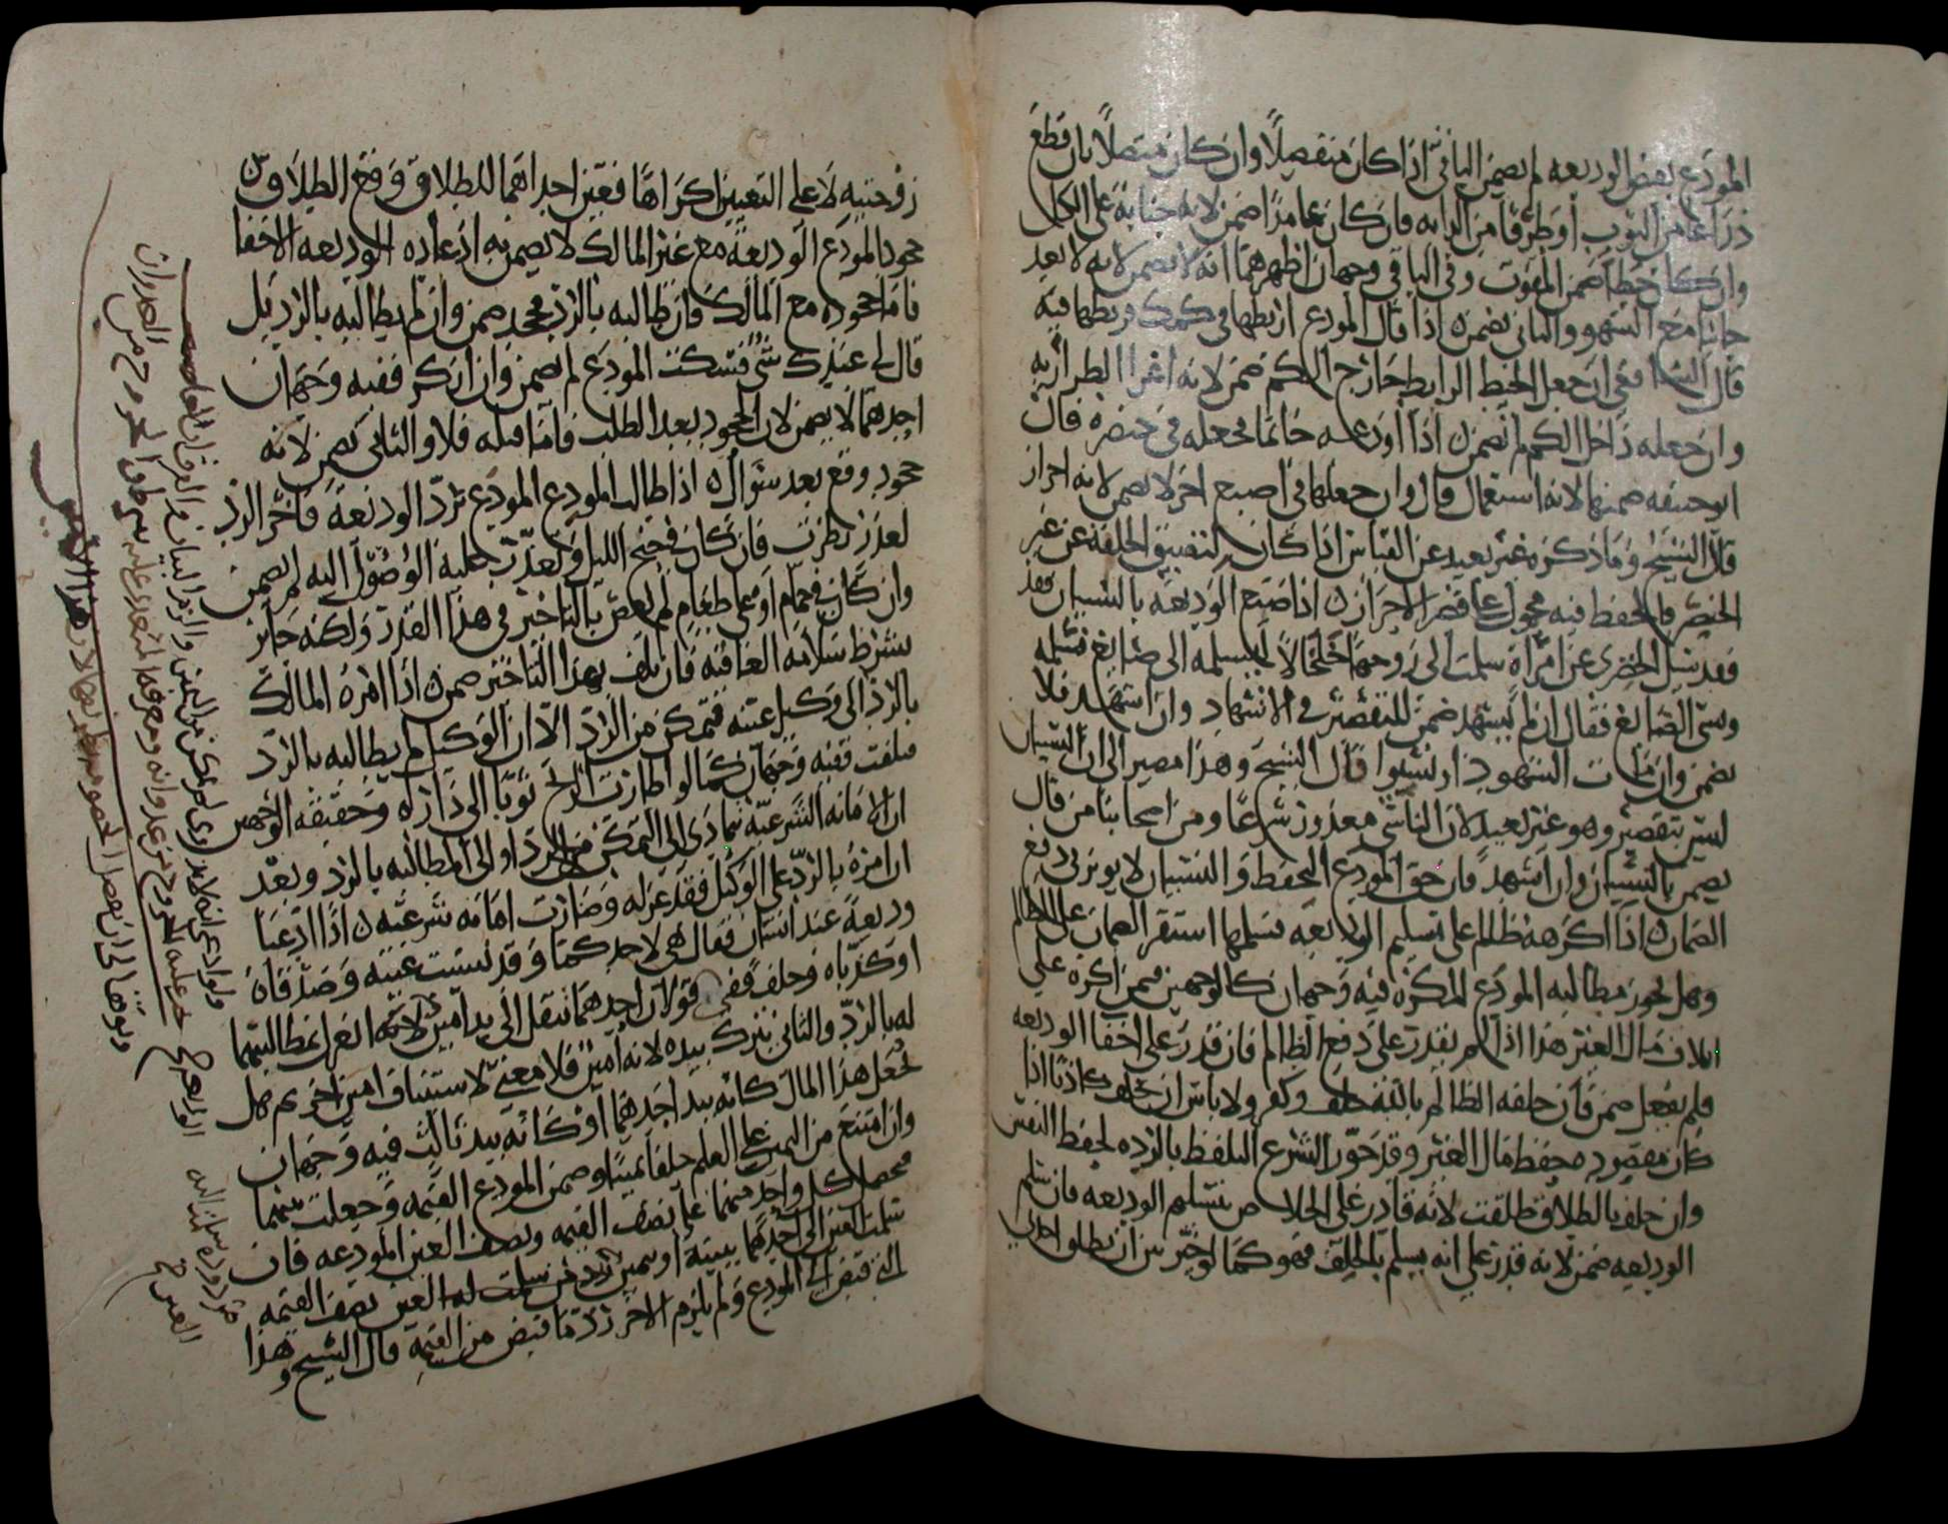 المودع بعض الوديعه لم يضمن الباقي اذا كان منفصلًا وان كان متصلًا بان قطع
ذراعا من الثوب أو طرفا من الدابه فان كان عامدًا ضمن لانه جنايةً على الكل
وان كان خطأ ضمن المفوت وفي الباقي وجهان اظهرهما انه لا يضمن لانه لا يعد
خائنا مع السهو والثاني يضمن اذا قال المودع اربطها في كمك فربطها فيه
قال الشافعي ان جعل الخيط الرابط خارج الكم ضمن لانه اغرا الطرار به
وان جعله داخل الكم لم يضمن اذا اودعه خاتما فجعله في خنصره قال
ابو حنيفه ضمنها لانه استعمال قال وان جعلها في اصبع اخر لا يضمن لانه احراز
قال الشيخ وما ذكره غير بعيد عن القياس اذا كان لتضييق الحلقه عن غير
الخنصر فالحفظ فيه محمول على قصر الاحراز اذا ضيع الوديعة بالنسيان فقد
فقد سئل الخضري عن امرأة سلمت الى زوجها خلخالًا ليسلمه الى صايغ فسلمه
ونسي الصايغ فقال ان لم يشهد ضمن للتقصير في الاشهاد وان استشهد فلا
يضمن وان مات الشهود او نسوا قال الشيخ وهذا مصير الى ان النسيان
ليس بتقصير وهو غير بعيد لان الناسي معذور شرعًا ومن اصحابنا من قال
يضمن بالنسيان وان اشهد فان حق المودع التحفظ والنسيان لا يوثر في دفع
الضمان اذا اكرهه ظالم على تسليم الوديعه فسلمها استقر الضمان على الظالم
وهل يجوز مطالبه المودع المكره فيه وجهان كالوجهين فيمن اكره على
اتلاف مال الغير هذا اذا لم يقدر على دفع الظالم فان قدر على اخفا الوديعه
فلم يفعل ضمن فان حلفه الظالم بالله حلف وكفر ولا باس ان يحلف كاذبًا اذا
كان مقصوده حفظ مال الغير وقد جوز الشرع التلفظ بالرده لحفظ النفس
وان حلف بالطلاق طلقت لانه قادر على الخلاص بتسليم الوديعه فان سلم
الوديعه ضمن لانه قدر على انه يسلم بالحلف فهو كما لو خير بين ان يطلق احدى
زوجتيه لا على التعيين اكراها فعين احداهما للطلاق وقع الطلاق
جحود المودع الوديعةً مع غير المالك لا يضمن به اذ عاده الوديعه الاخفا
فاما جحوده مع المالك فان طالبه بالرد فجحد ضمن وان لم يطالبه بالرد بل
قال لي عندك شيء فسكت المودع لم يضمن وان انكر ففيه وجهان
احدهما لا يضمن لان الجحود بعد الطلب فاما قبله فلا والثاني يضمن لانه
جحود وقع بعد سوال اذا طالب المودع المودع برد الوديعة فاخر الرد
لعذر نظرت فان كان في جنح الليل وتعذرت عليه الوصول اليه لم يضمن
وان كان في حمام او على طعام لم يعص بالتاخير في هذا القدر ولكنه جايز
بشرط سلامه العاقبه فان تلف بهذا التاخير ضمن اذا امره المالك
بالرد الى وكيل عينه فتمكن من الرد الا ان الوكيل لم يطالبه بالرد
فتلفت ففيه وجهان كما لو اطارت الريح ثوبا الى داره وحقيقه الوجهين
ان الامانه الشرعيه تتمادى الى التمكن من الرد او الى المطالبه بالرد وبعد
ان امره بالرد على الوكيل فقد عزله وصارت امانه شرعيه اذا ادعيا
وديعةً عند انسان فقال هي لاحدكما وقد نسيت عينه وصدقاه
او كذباه وحلف ففي قولان احدهما تنتقل الى يد امين لانه انعزل بمطالبتهما
له بالرد والثاني يترك بيده لانه امين فلا معنى لاستيناف امين اخر ثم هل
يجعل هذا المال كانه بيد احدهما او كانه بيد ثالث فيه وجهان
وان امتنع من اليمين على العلم حلفا يمينا وضمن المودع القيمه وجعلت بينهما
فحصل كل واحد منهما على نصف القيمه ونصف العين المودعه فان
سلمت العين الى احدهما ببينة او بيمين رد من سلمت له العين نصف القيمه
التي قبض الى المودع ولم يلزم الاخر رد ما قبض من القيمه قال الشيخ وهذا